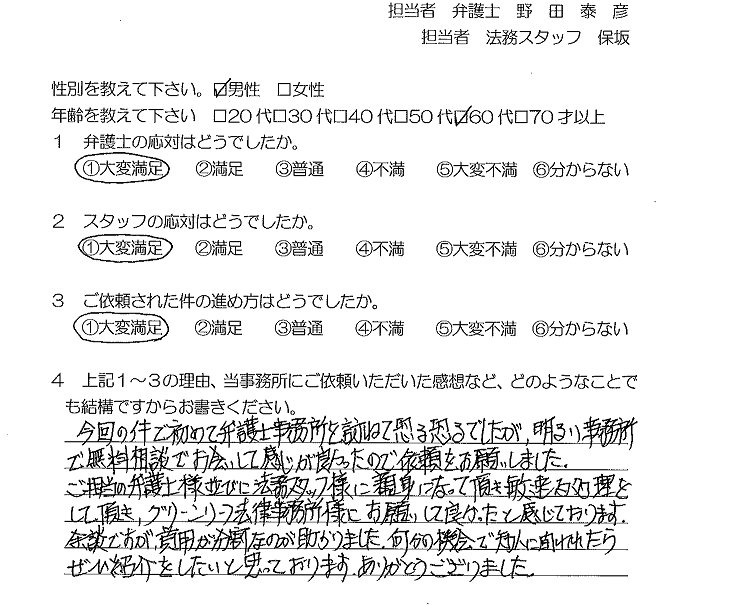 担当者 弁護士 野 田 泰 彦
担当者 法務スタッフ 保坂
性別を教えて下さい。 ☑男性 □女性
年齢を教えて下さい □20代□30代□40代□50代☑60代□70才以上
1 弁護士の応対はどうでしたか。
①大変満足 ②満足 ③普通 ④不満 ⑤大変不満 ⑥分からない
2 スタッフの応対はどうでしたか。
①大変満足 ②満足 ③普通 ④不満 ⑤大変不満 ⑥分からない
3 ご依頼された件の進め方はどうでしたか。
①大変満足 ②満足 ③普通 ④不満 ⑤大変不満 ⑥分からない
4 上記1～3の理由、当事務所にご依頼いただいた感想など、どのようなことで
も結構ですからお書きください。
今回の件で初めて弁護士事務所を訪ねて恐る恐るでしたが、明るい事務所
で無料相談でお会いして感じが良かったので依頼をお願いしました。
ご担当の弁護士様並びに法務スタッフ様に親身になって頂き敏速な処理を
して頂き、グリーンリーフ法律事務所様にお願いして良かったと感じております。
余談ですが、費用が分割なのが助かりました。何分の機会で知人に
ぜひ紹介をしたいと思っております。ありがとうございました。